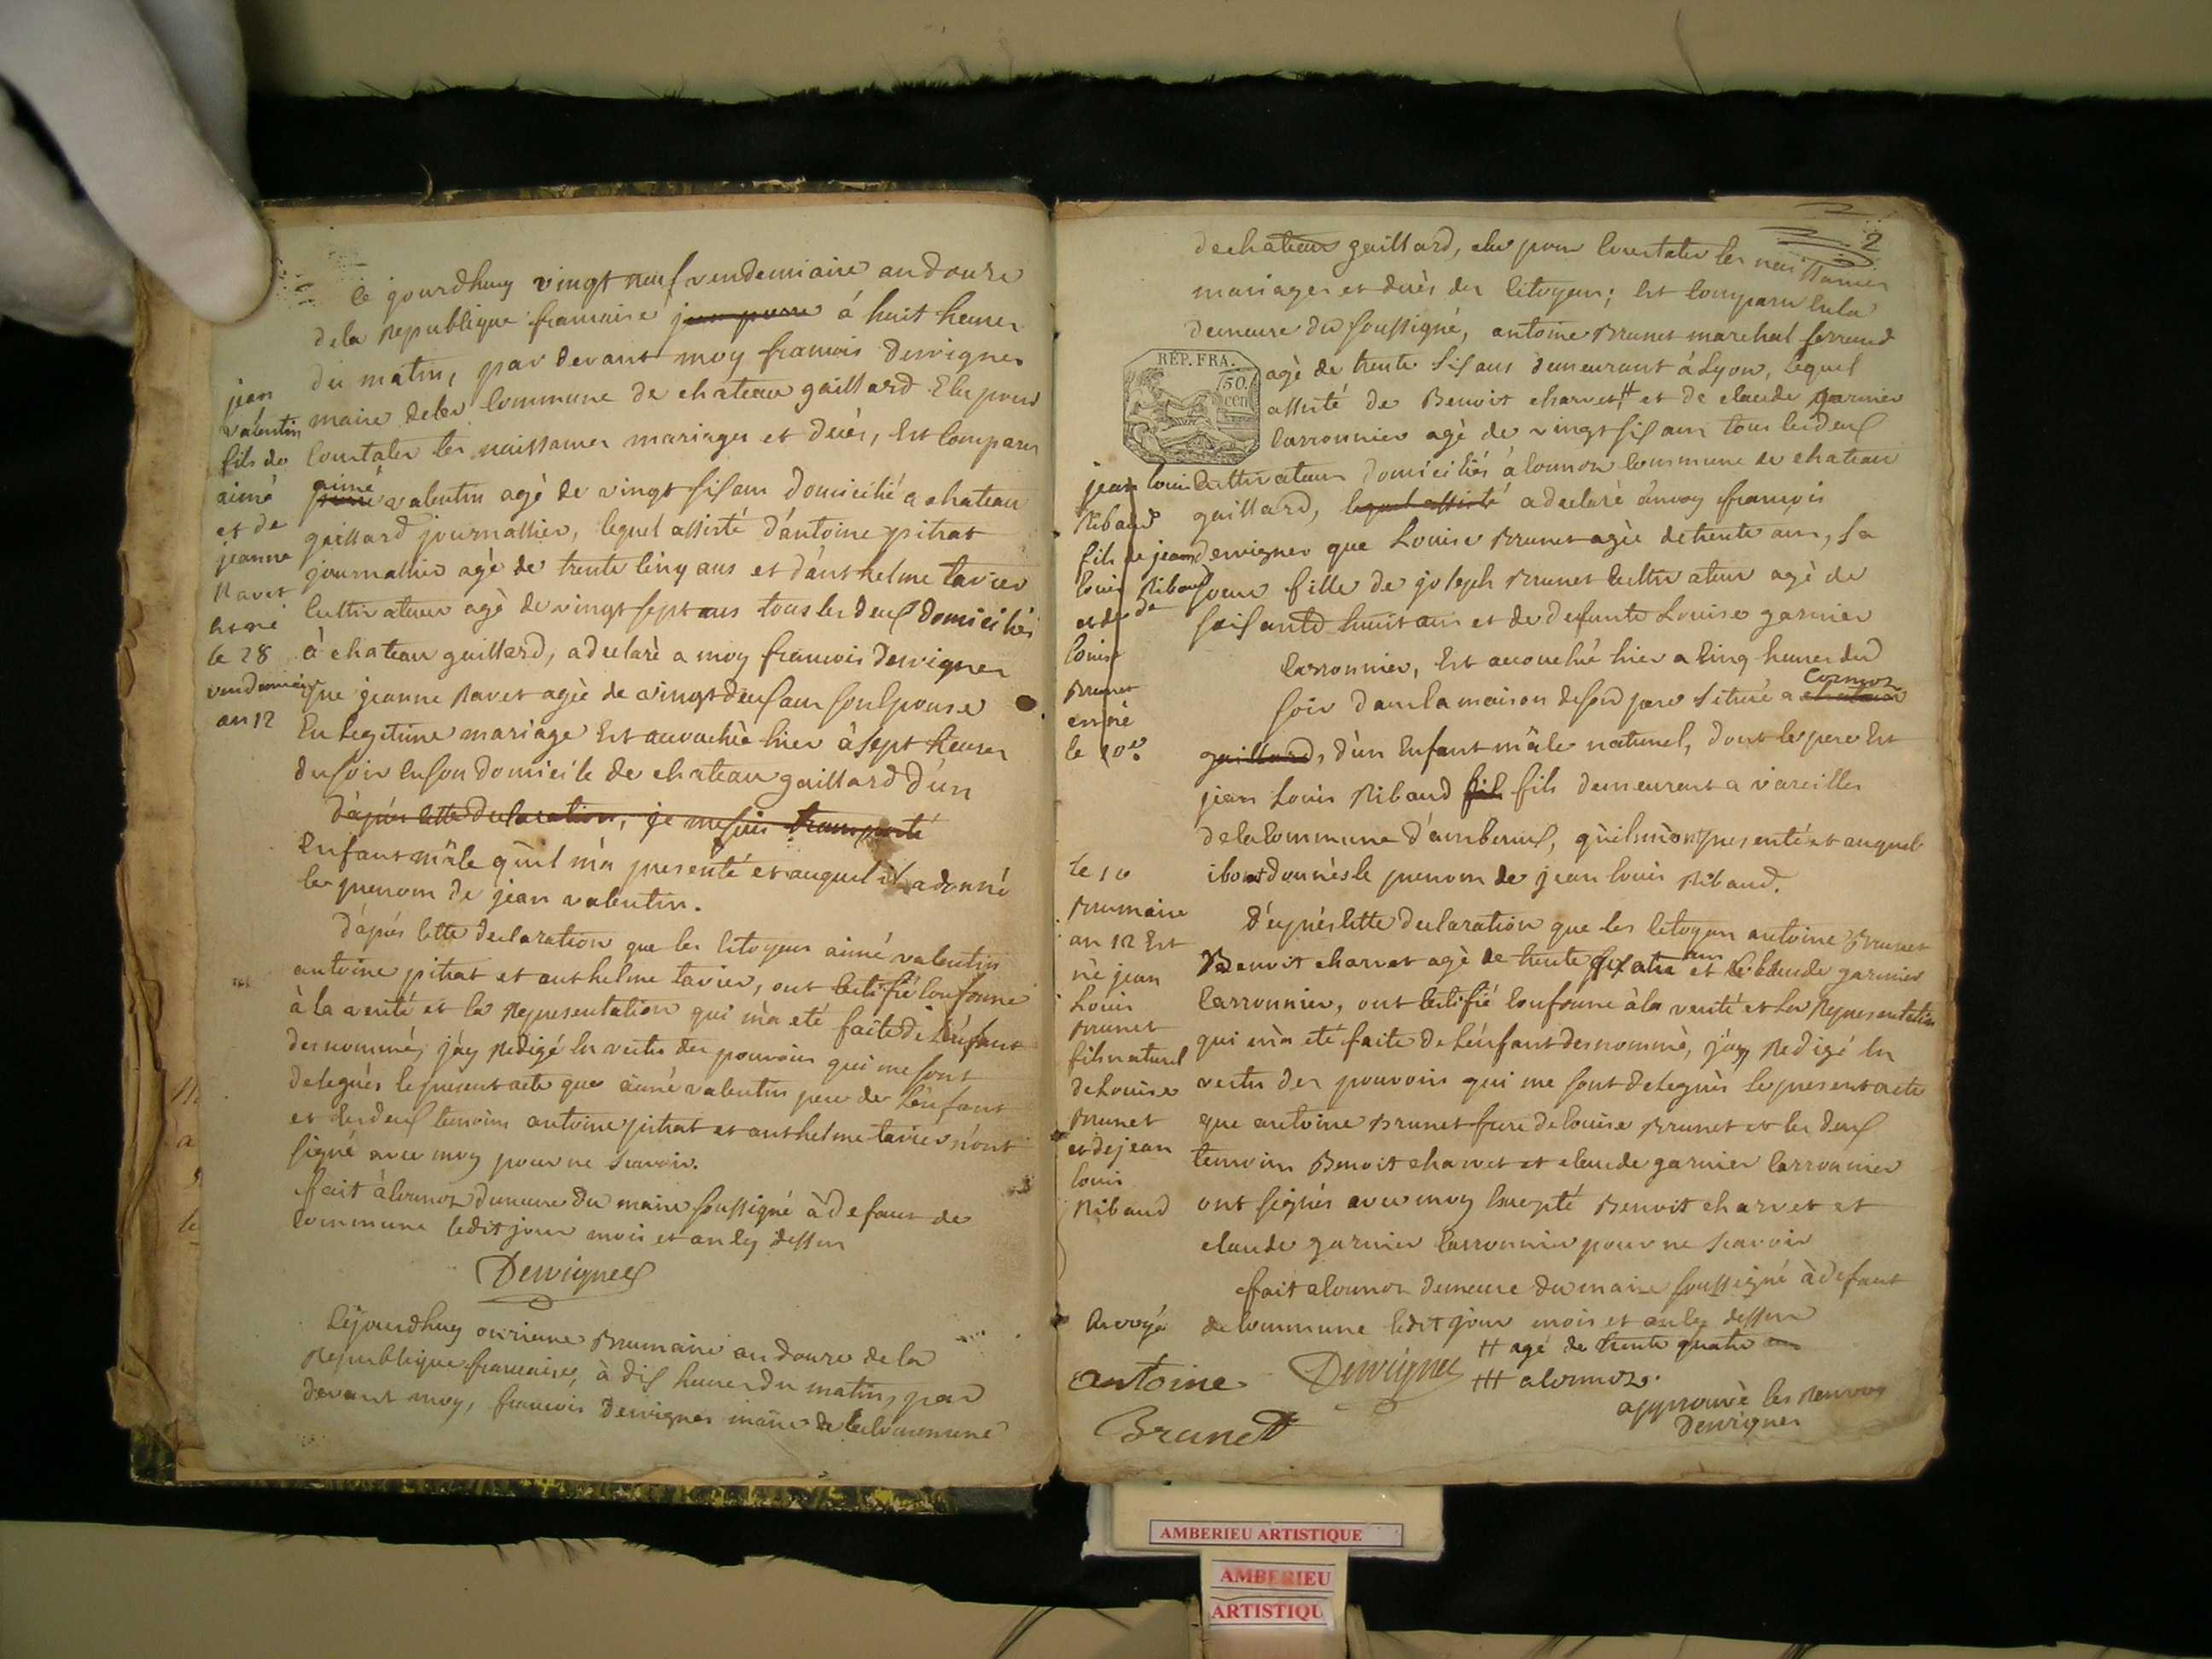 ce jourdhuy vingt neuf vendemiaire an douze
de la republique francaise jean pierre à huit heures
du matin, par devant moy francois Dervignes
maire de la commune de chateau gaillard Elu pour
constater les naissances mariages et decès, Est comparu
aimé
valentin agè de vingt six ans domicilié a chateau
gaillard journallier, lequel assisté d'antoine pitrat
journallier agè de trente cinq ans et d'anthelme tavier
cultivateur agè de vingt sept ans tous les deux domiciliés
à chateau gaillard, a declarè a moy francois Dervignes
que jeanne Ravet agèe de vingt deux ans son Epouse
En legitime mariage Est accouchèe hier à sept heures
du soir En son domicile de chateau gaillard d'un
d'après cette declaration, je me suis transporté
Enfant mâle qu'il m'a presenté et auquel il a donné
le prenom de jean valentin.
d'après cette declaration que les citoyens aimé valentin
antoine pitrat et anthelme tavier, ont certifié conforme
à la verité et la Representation qui m'a eté faite de L'enfant
denommé, j'ay Redigé En vertu des pouvoirs qui me sont
delegués le present acte que aimé valentin pere de L'enfant
et les deux temoins antoine pitrat et anthelme tavier n'ont
signé avec moy pour ne scavoir.
fait à Cormoz demeure du maire soussigné à defaut de
commune ledit jour mois et an cy dessus
Dervignes
Cejourdhuy onzieme Brumaire an douze de la
Republique francaise, à dix heures du matin, par
devant moy, francois Dervignes maire de la commune
jean
valentin
fils de
aimé
et de
jeanne
Ravet
Est né
le 28
vendemiaire
an 12
2
de chateau gaillard, elu pour Constater les naissances
mariages et decès des citoyens; Est comparu En la
demeure du soussigné, antoine Brunet marechal ferrand
agè de trente six ans demeurant à Lyon, Lequel
assisté de Benoit charvet # et de claude garnier
Carronnier agè de vingt six ans tous les deux
cultivateurs domiciliés à Cormoz commune de chateau
gaillard, lequel assisté a declarè à moy francois
Dervignes que Louise Brunet agèe de trente ans, sa
soeur fille de joseph Brunet Cultivateur agè de
soixante huit ans et de defunte Louise garnier
Carronnier, Est accouchè hier a cinq heures du
soir dans la maison de son pere situé a chateau
Cormoz
gaillard, d'un Enfant mâle naturel, dont le pere Est
jean Louis Ribaud fil fils demeurant a vareilles
de la commune d'amberieux, qu'ils m'ont presenté et auquel
ils ont donnès le prenom de jean louis Ribaud.
D'après cette declaration que les citoyens antoine Brunet
Benoit charvet agè de trente quatre ans et de claude garnier
Carronnier, ont certifié conforme à la verité et La Representation
qui m'a eté faite de L'enfant denommè, j'ay Redigé En
vertu des pouvoirs qui me sont delegués le present acte
que antoine Brunet frere de louise Brunet et les deux
temoins Benoit charvet et claude garnier Carronnier
ont signés avec moy Excepté Benoit charvet et
claude garnier Carronnier pour ne scavoir
fait a Cormoz demeure du maire soussigné à defaut
de commune ledit jour mois et an cy dessus
# agé de trente quatre ans
## a Cormoz.
approuvè les Renvoys
Dervignes
Dervignes
antoine
Brunet
jean louis
Ribaud
fils de jean
louis Ribaud
et de
Louise
Brunet
est né
le 10e.
Le 10
Brumaire
an 12 Est
né jean
Louis
Brunet
fils naturel
de Louise
Brunet
et de jean
louis
Ribaud
REP. FRA.
50.
cen
AMBERIEU ARTISTIQUE
AMBERIEU
ARTISTIQU